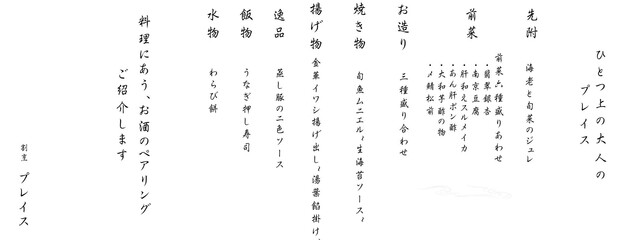 ひとつ上の大人の
プレイス
先附
海老と旬菜のジュレ
前菜
前菜六種盛りあわせ
・翡翠銀杏
・南京豆腐
・肝和えスルメイカ
・あん肝ポン酢
・大和芋酢の物
・〆鯖松前
お造り
三種盛り合わせ
焼き物
旬魚ムニエル〜生海苔ソース〜
揚げ物
金華イワシ揚げ出し〜湯葉餡掛け〜
逸品
蒸し豚の二色ソース
飯物
うなぎ押し寿司
水物
わらび餅
料理にあう、お酒のペアリング
ご紹介します
割烹 プレイス